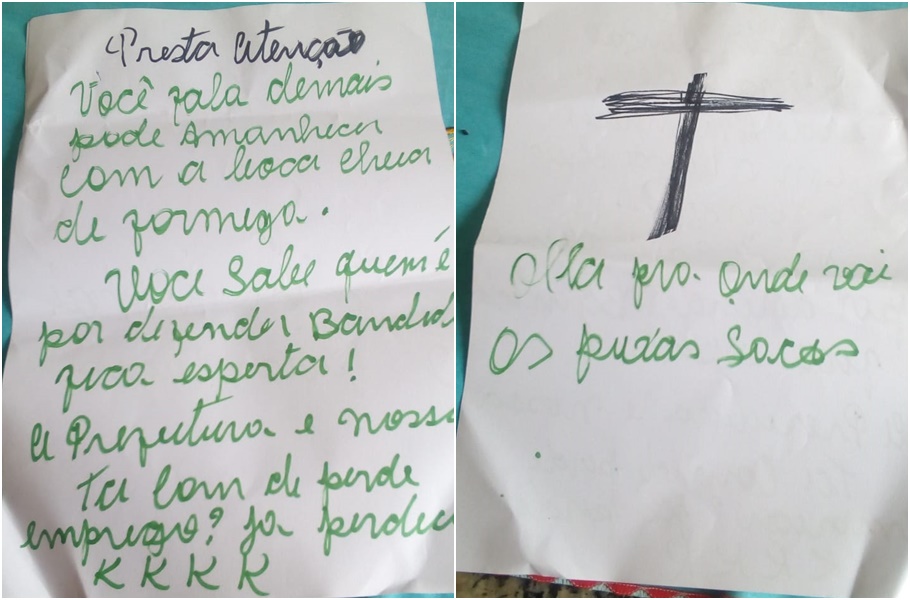 Presta Atenção
Você fala demais
pode Amanhecer
com a boca cheia
de formega.
Voce Sabe quem é
por defender Bandid
fica esperta!
A Prefeitura e nossa
Ta com de perde
emprego? Ja perdeu
KKKK
Olha pra onde vai
os puxas sacos